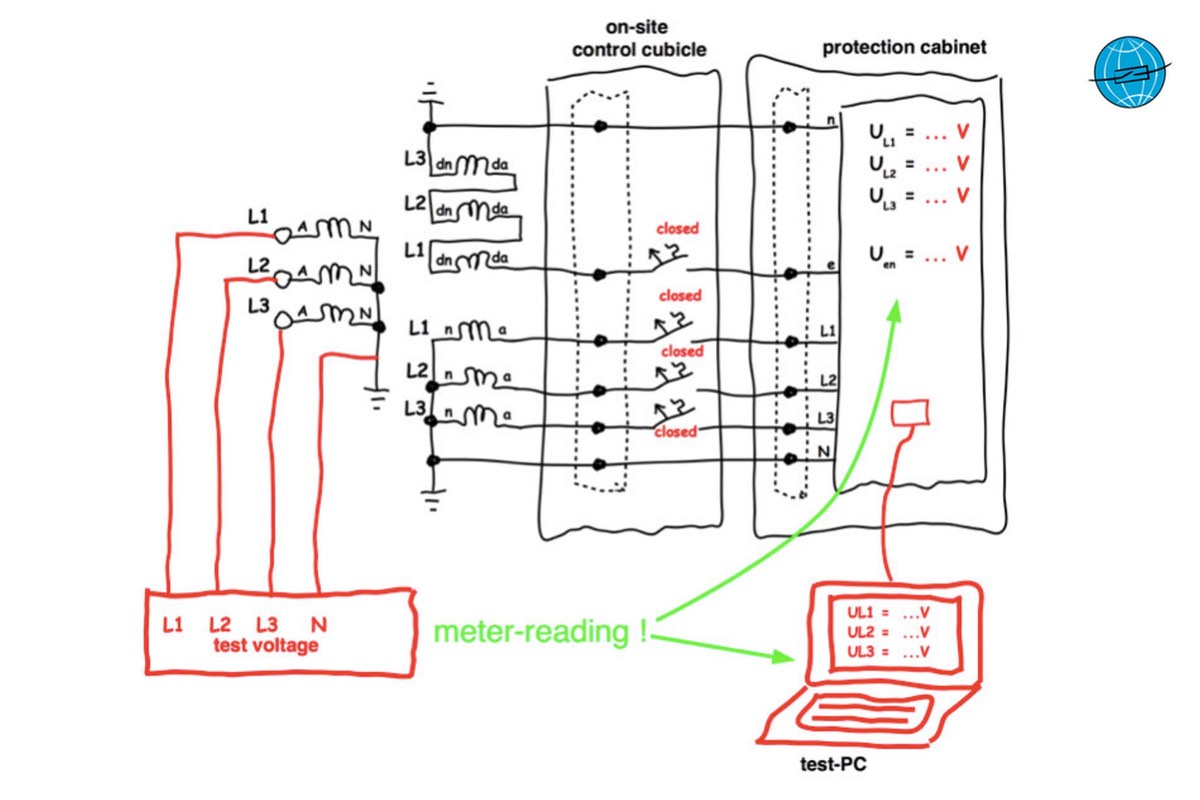 on-site
control cubicle
protection cabinet
n
U L1 = ... V
U L2 = ... V
U L3 = ... V
U en = ... V
L3 dn da
L2 dn da
L1 dn da
closed
e
L1 A N
L2 A N
L3 A N
closed
L1 n a
L1
closed
L2 n a
L2
L3 n a
L3
closed
N
L1 L2 L3 N
test voltage
meter-reading !
UL1 = ...V
UL2 = ...V
UL3 = ...V
test-PC